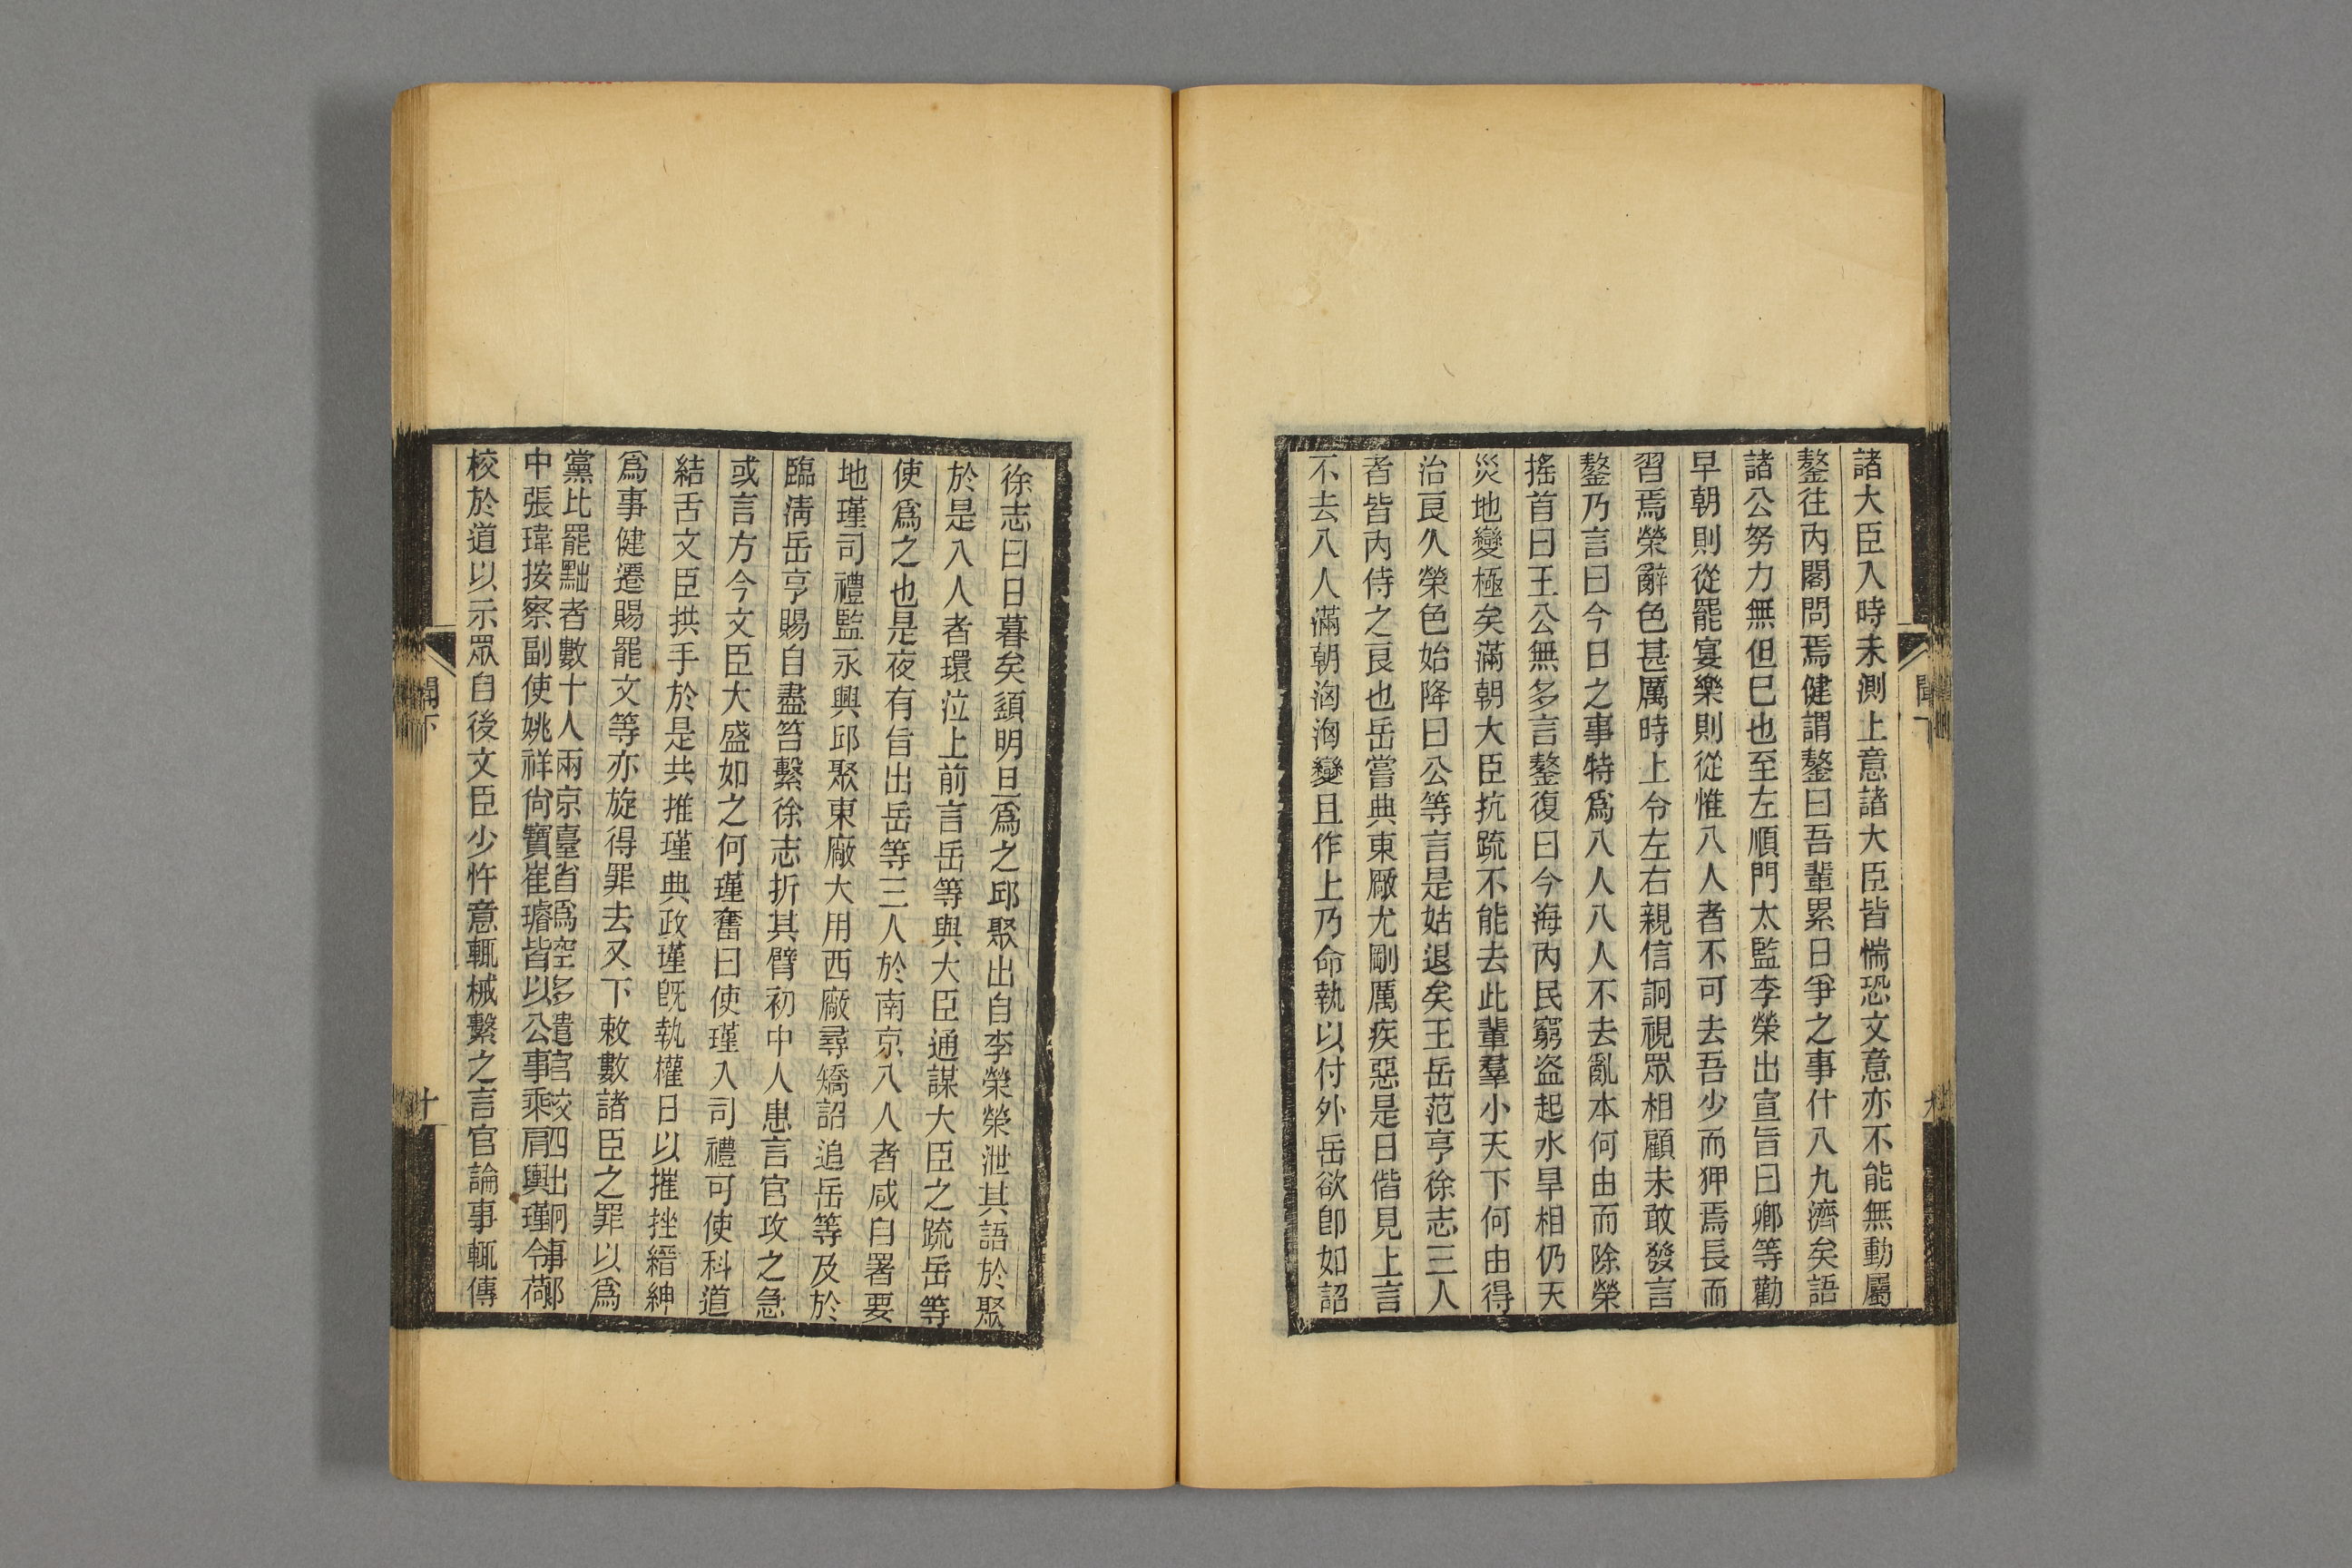 諸大臣入時未測上意諸大臣皆惴恐文意亦不能無動屬
鏊往內閣問焉健謂鏊曰吾輩累日爭之事什八九濟矣語
諸公努力無但已也至左順門太監李榮出宣旨曰卿等勸
早朝則從罷宴樂則從惟八人者不可去吾少而狎焉長而
習焉榮辭色甚厲時上令左右親信詗視眾相顧未敢發言
鏊乃言曰今日之事特爲八人八人不去亂本何由而除榮
搖首曰王公無多言鏊復曰今海內民窮盜起水旱相仍天
災地變極矣滿朝大臣抗疏不能去此輩羣小天下何由得
治良久榮色始降曰公等言是姑退矣王岳范亨徐志三人
者皆內侍之良也岳嘗典東厰尤剛厲疾惡是日偕見上言
不去八人滿朝洶洶變且作上乃命執以付外岳欲卽如詔
徐志曰日暮矣須明旦爲之邱聚出自李榮榮泄其語於聚
於是八人者環泣上前言岳等與大臣通謀大臣之疏岳等
使爲之也是夜有旨出岳等三人於南京八人者咸自署要
地瑾司禮監永興邱聚東厰大用西厰尋矯詔追岳等及於
臨淸岳亨賜自盡笞繫徐志折其臂初中人患言官攻之急
或言方今文臣大盛如之何瑾奮曰使瑾入司禮可使科道
結舌文臣拱手於是共推瑾典政瑾旣執權日以摧挫縉紳
爲事健遷賜罷文等亦旋得罪去又下敕數諸臣之罪以爲
黨比罷黜者數十人兩京臺省爲空多遣官校四出詗事郞
中張瑋按察副使姚祥尙寶崔璿皆以公事乘肩輿瑾令荷
校於道以示眾自後文臣少忤意輒械繫之言官論事輒傳
聞下
十